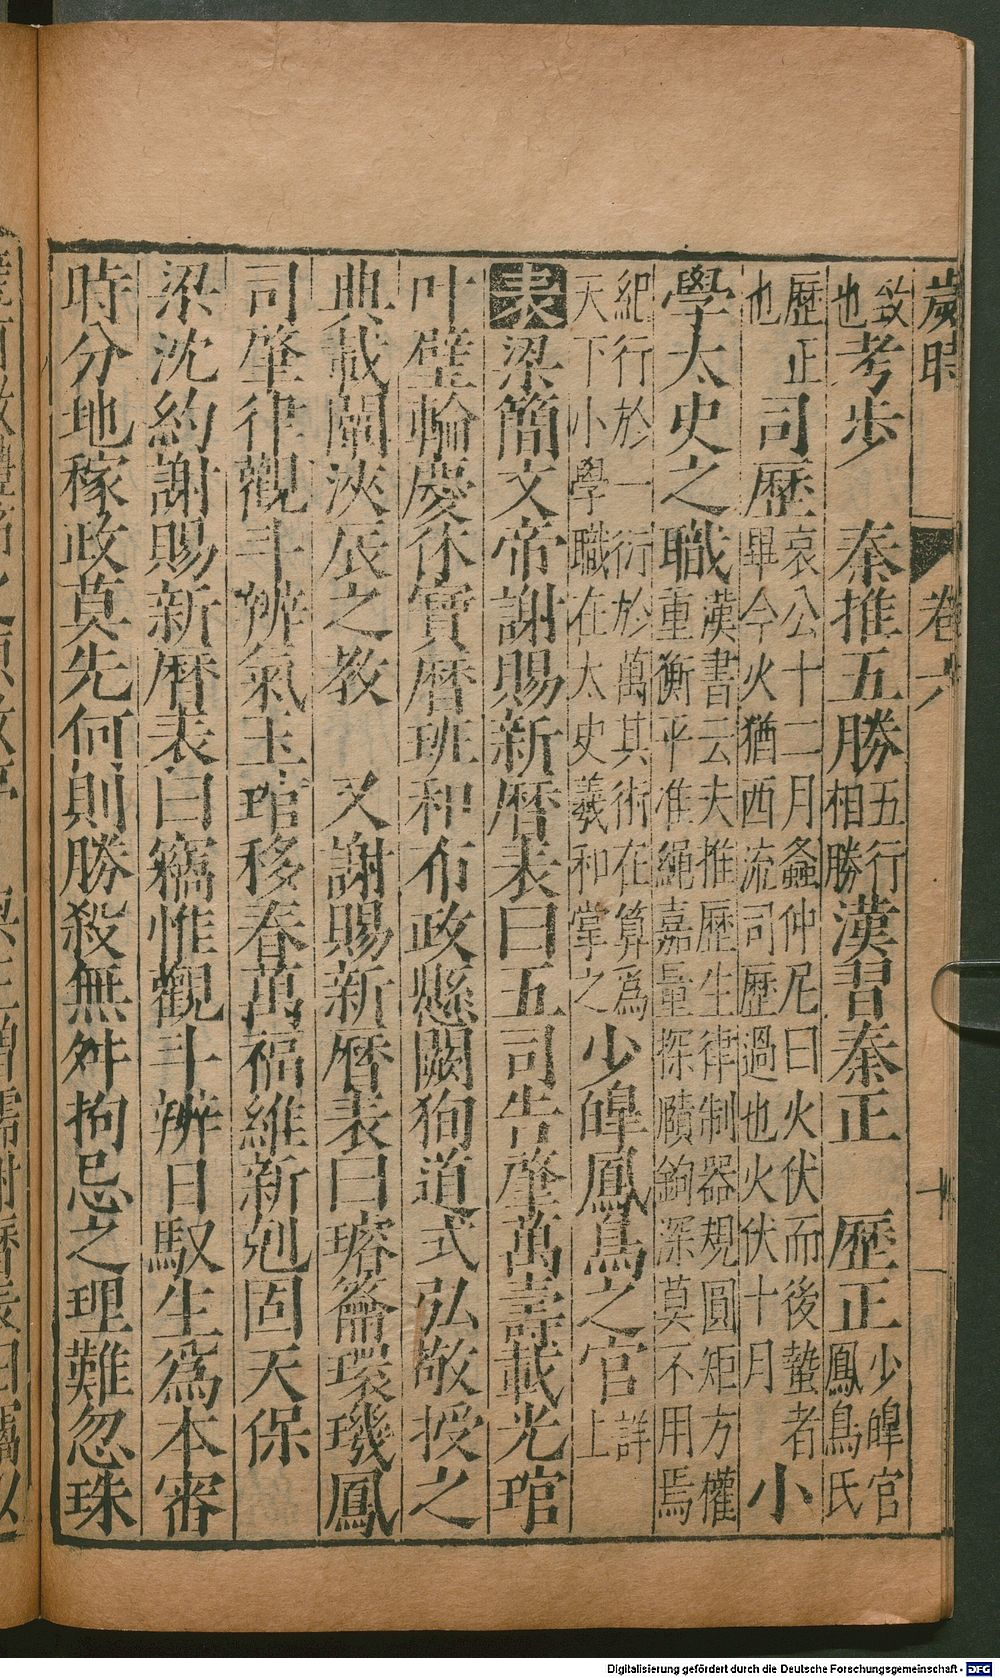 歲時 卷六 十
效也考步 秦推五勝五行相勝漢書秦正 歷正少皥官鳳鳥氏
歷正也司歷哀公十二月螽仲尼曰火伏而後蟄者畢今火猶西流司歷過也火伏十月小
學太史之職漢書云夫推歷生律制器規圓矩方權重衡平准繩嘉量探賾鉤深莫不用焉
紀行於一衍於萬其術在算為天下小學職在太史羲和掌之少皥鳳鳥之官詳上
表梁簡文帝謝賜新曆表曰五司告肇萬壽載光琯
叶璧輪慶休寶曆班和布政懸闕狥道式弘敬授之
典載闡浹辰之教 又謝賜新曆表曰瑢籥環璣鳳
司肇律觀斗辨氣玉琯移春萬福維新尅固天保
梁沈約謝賜新曆表曰竊惟觀斗辨日馭生為本審
時分地稼政莫先何則勝殺無舛拘忌之理難忽珠
Digitalisierung gefördert durch die Deutsche Forschungsgemeinschaft - DFG